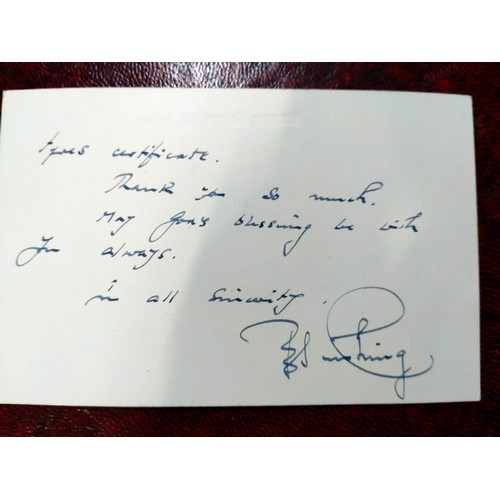 certificate.
Thank you so much.
May God's blessing be with
you always.
in all sincerity.